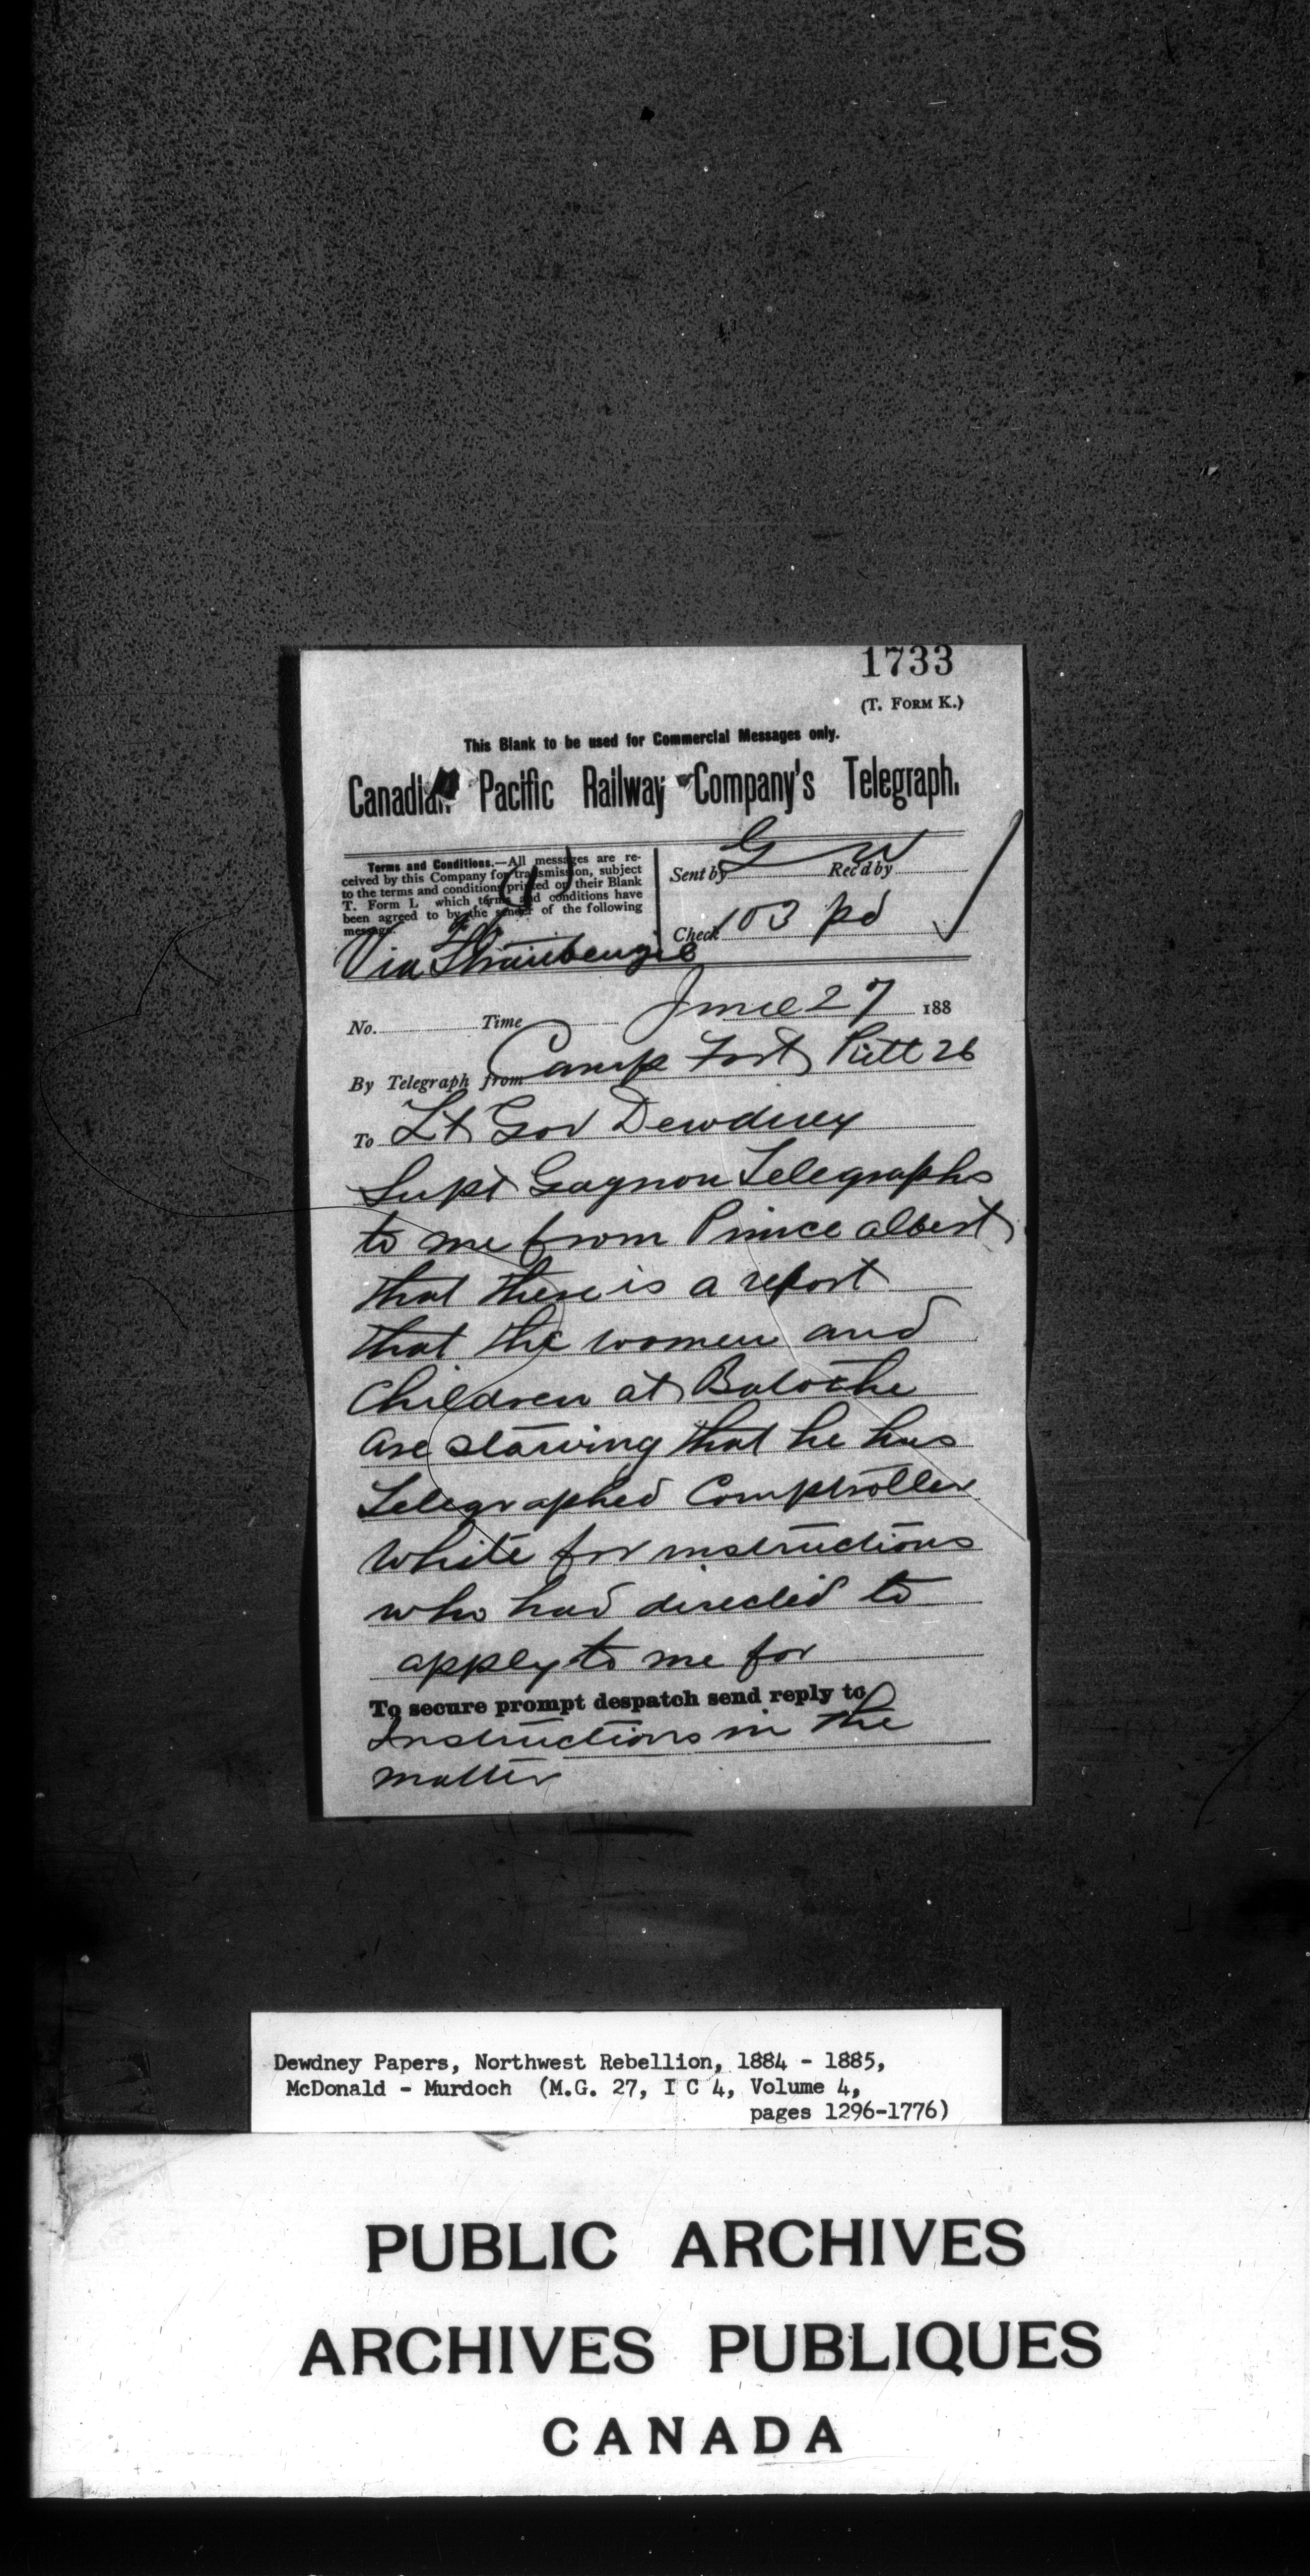 1733
(T. FORM K.)
This Blank to be used for Commercial Messages only.
Canadian Pacific Railway Company's Telegraph.
Terms and Conditions.—All messages are re-
ceived by this Company for transmission, subject
to the terms and conditions printed on their Blank
T. Form L which terms and conditions have
been agreed to by the sender of the following
message.
Sent by G Rec'd by W
Check 103 pd
Via Straubenzie
No. Time June 27 188
By Telegraph from Camp Fort Pitt 26
To Lt Gov Dewdney
Supt Gagnon Telegraphs
to me from Prince albert
that there is a report
that the women and
Children at Batoche
are starving that he has
Telegraphed Comptroller
White for instructions
who had directed to
apply to me for
To secure prompt despatch send reply to
Instructions in the
matter
Dewdney Papers, Northwest Rebellion, 1884 - 1885,
McDonald - Murdoch (M.G. 27, I C 4, Volume 4,
pages 1296-1776)
PUBLIC ARCHIVES
ARCHIVES PUBLIQUES
CANADA